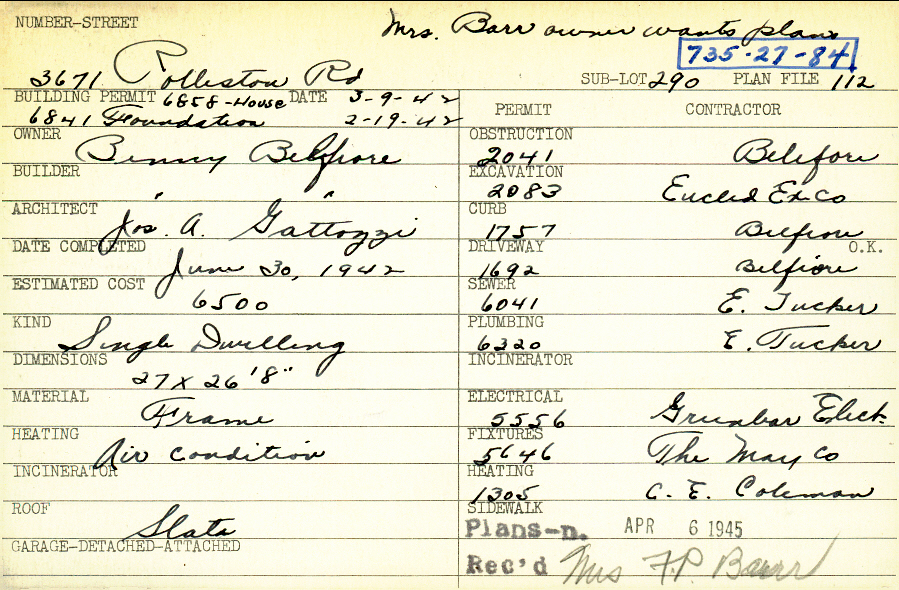 NUMBER-STREET
Mrs. Barr owner wants plans
735-27-84
3671 Rolliston Rd
SUB-LOT 290 PLAN FILE 112
BUILDING PERMIT 6858-House DATE 3-9-42
6841 Foundation 2-19-42
PERMIT CONTRACTOR
OWNER Benny Belfiore
OBSTRUCTION 2041 Belefore
BUILDER " "
EXCAVATION 2083 Euclid Ex Co
ARCHITECT Jos. A. Gattozzi
CURB 1757 Belfiore
DATE COMPLETED June 30, 1942
DRIVEWAY 1692 Belfiore O.K.
ESTIMATED COST 6500
SEWER 6041 E. Tucker
KIND Single Dwelling
PLUMBING 6320 E. Tucker
DIMENSIONS 27 X 26'8"
INCINERATOR
MATERIAL Frame
ELECTRICAL 5556 Elect.
HEATING Air Condition
FIXTURES 5646 The May Co
INCINERATOR
HEATING 1305 C. E. Coleman
ROOF Slate
SIDEWALK
Plans-n. APR 6 1945
GARAGE-DETACHED-ATTACHED
Rec'd Mrs F.P. Barr